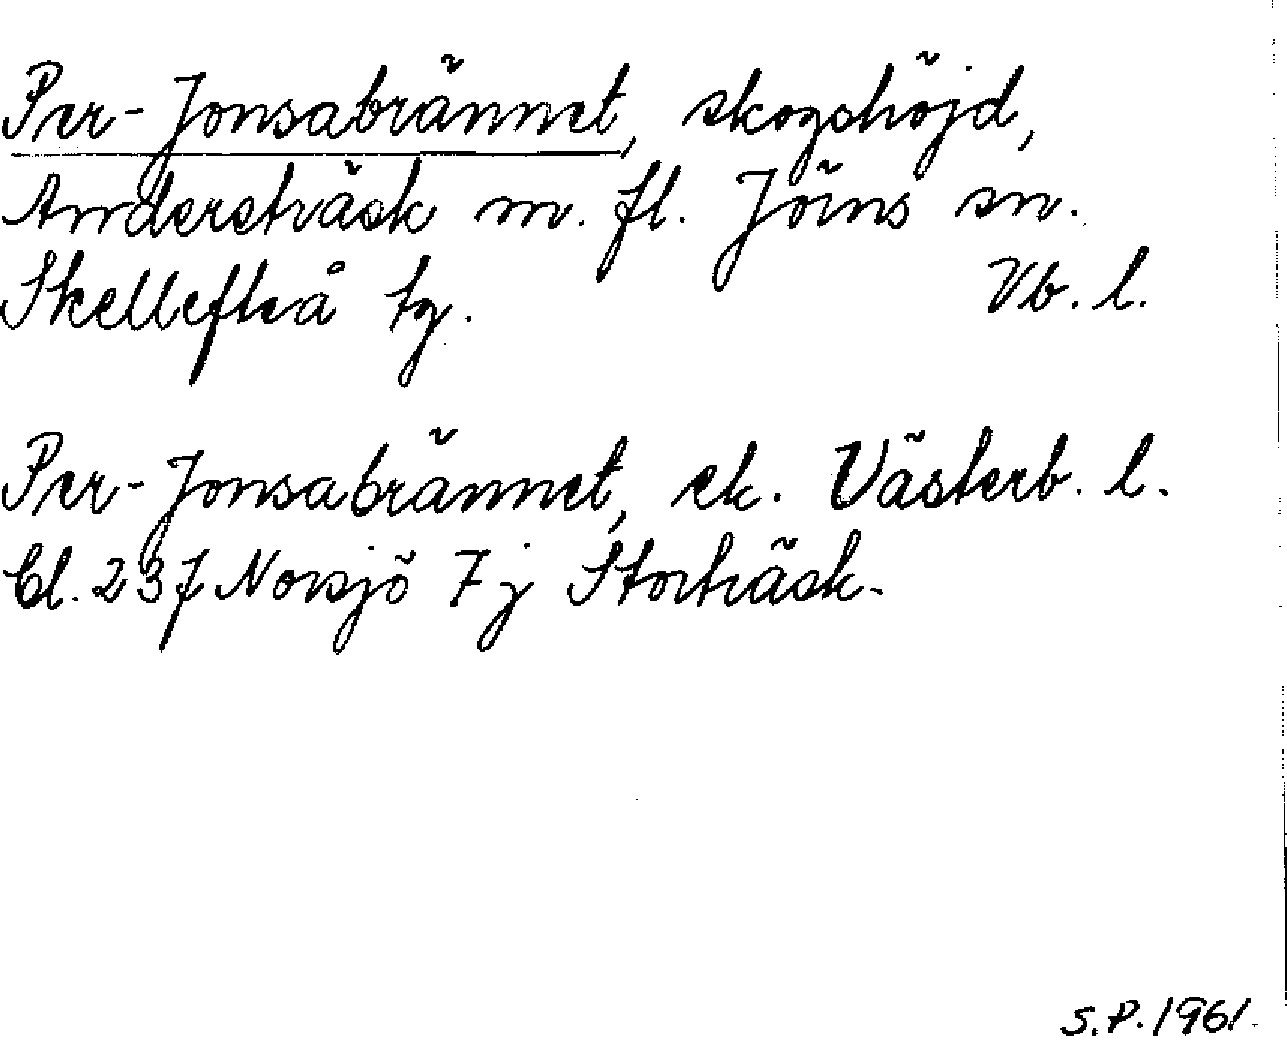 Per-Jonsabrännet, skogshöjd,
Andersträsk m. fl. Jörns sn.
Skellefteå tg. Vb. l.
Per-Jonsabrännet, ek. Västerb. l.
bl. 237 Norsjö 7j Storträsk.
S.P. 1961.